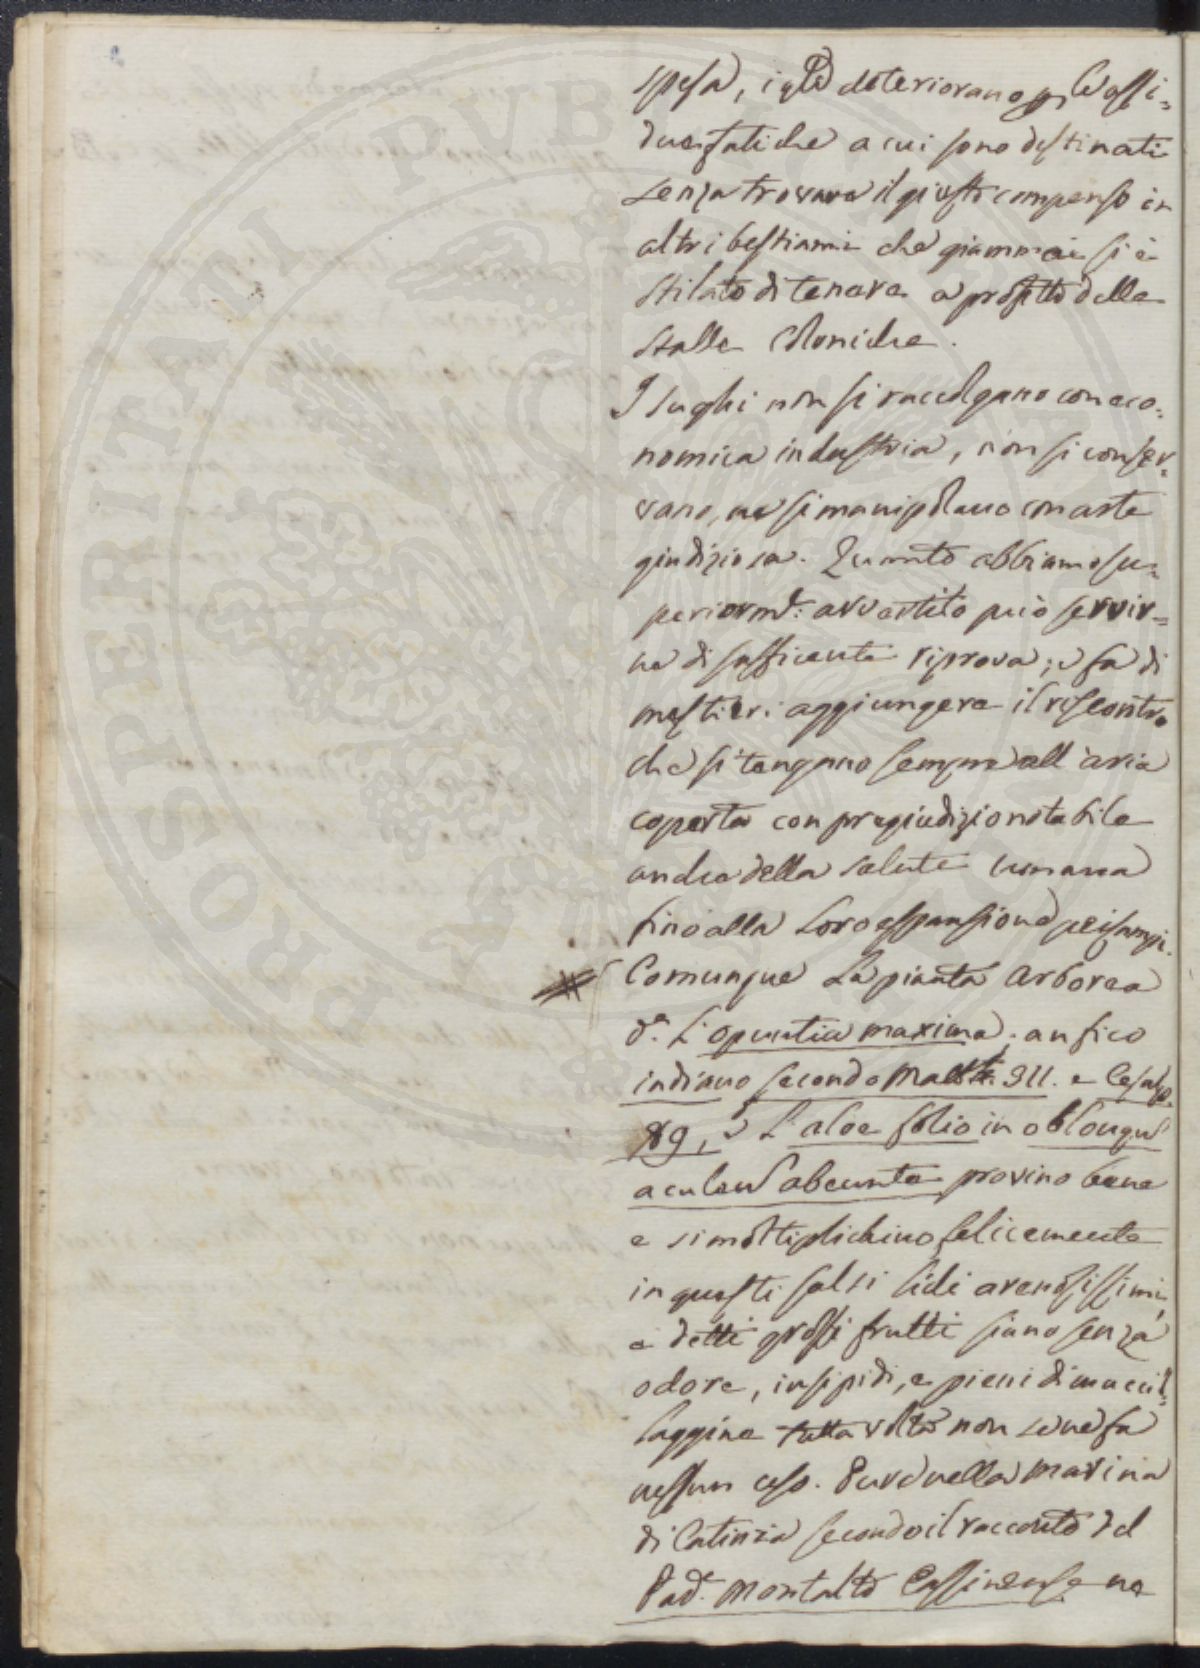 spesa, i q.li deteriorano p le assi=
due fatiche a cui sono destinati
senza trovare il giusto compenso in
altri bestiami che giammai si è
stilato di tenere a profitto delle
stalle Coloniche.
I sughi non si raccolgano con eco=
nomica industria, non si conser=
vano, ne si manipolano con arte
giudiziosa. Quanto abbiamo su=
periorm.e: avvertito può servir=
ne di sufficente riprova; e fa di
mestieri aggiungere il riscontro
che si tengano sempre all'aria
coperta con pregiudizio notabile
anche della salute umana
fino alla loro espansione pei campi.
Comunque La pianta Arborea
d.a L'opuntia maxima, au fico
indiano secondo Matt. 911. e Cesalp.
89, e L'aloe folio in oblongu
aculeu abeunte provino bene
e si moltiplichino felicemente
in questi salsi lidi arenosissimi,
e detti grossi frutti siano senza
odore, insipidi, e pieni di mucil=
laggine tutta volta non se ne fa
nessun uso. Pure nella Marina
di Catania secondo il racconto del
Pad.e Montalto Cassinense ne
PROSPERITATI PUBLICAE